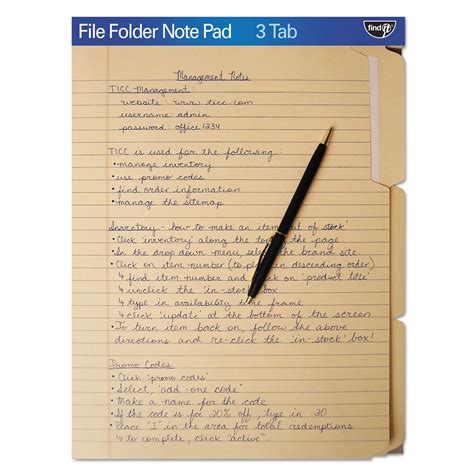 File Folder Note Pad 3 Tab find it
Management Notes
TICC Management:
website: www.ticc.com
username: admin
password: office1234
TICC is used for the following:
• manage inventory
• use promo codes
• find order information
• manage the sitemap
Inventory - how to make an item 'out of stock'
• Click 'inventory' along the top of the page
• In the drop down menu select the brand site
• Click on item number (to put in descending order)
↳ find item number and click on 'product title'
↳ unclick the 'in-stock' box
↳ type in availability time frame
↳ click 'update' at the bottom of the screen
• To turn item back on, follow the above
directions and re-click the 'in-stock' box!
Promo Codes
• Click 'promo codes'
• Select, 'add-one code'
• Make a name for the code
• If the code is for 20% off, type in -20
• Place "1" in the area for total redemptions
↳ to complete, click "active"